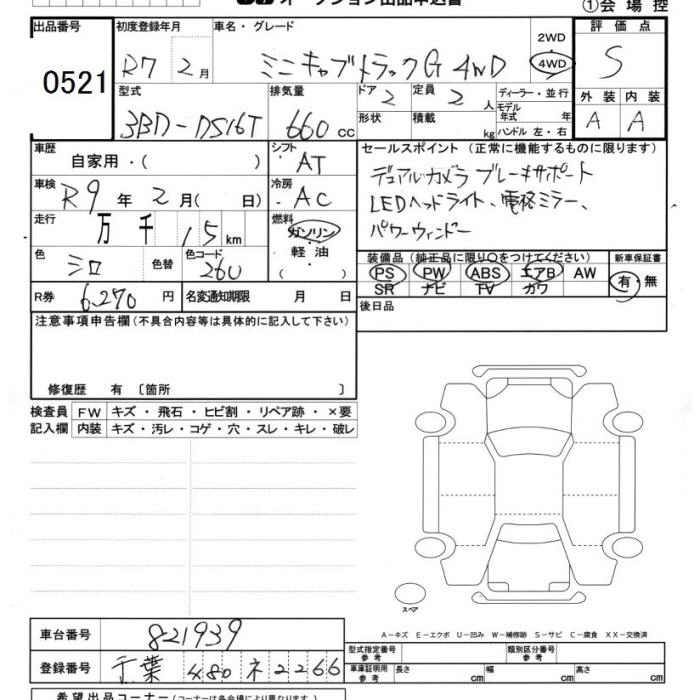 オークション出品申込書
①会場控
出品番号 0521
初度登録年月 R7 2月
車名・グレード ミニキャブトラックG 4WD
2WD
4WD
評価点 S
外装 内装
A A
型式 3BD-DS16T
排気量 660 cc
ドア 2
定員 2 人
形状
積載 kg
ディーラー・並行
モデル年式 年
ハンドル 左・右
車歴 自家用・( )
シフト ・AT
車検 R9 年 2 月( 日)
冷房 ・AC
走行 万 千 15 km
燃料 ガソリン・軽油・( )
色 シロ
色替
色カラーコード 260
R券 6,270 円
名変通知期限 月 日
セールスポイント (正常に機能するものに限ります)
デュアルカメラ ブレーキサポート
LEDヘッドライト、電格ミラー、
パワーウィンドー
装備品 (純正品に限り○をつけてください)
新車保証書
PS PW ABS エアB AW
SR ナビ TV カワ
有・無
後日品
注意事項申告欄 (不具合内容等は具体的に記入して下さい)
修復歴 有 〔箇所 〕
検査員記入欄
FW キズ・飛石・ヒビ割・リペア跡・×要
内装 キズ・汚レ・コゲ・穴・スレ・キレ・破レ
スペア
A−キズ E−エクボ U−凹み W−補修跡 S−サビ C−腐食 XX−交換済
車台番号 821939
登録番号 千葉 480 ネ 2266
型式指定番号 参考
類別区分番号 参考
車庫証明用 参考
長さ cm
幅 cm
高さ cm
希望出品コーナー (コーナーは各会場により異なります)